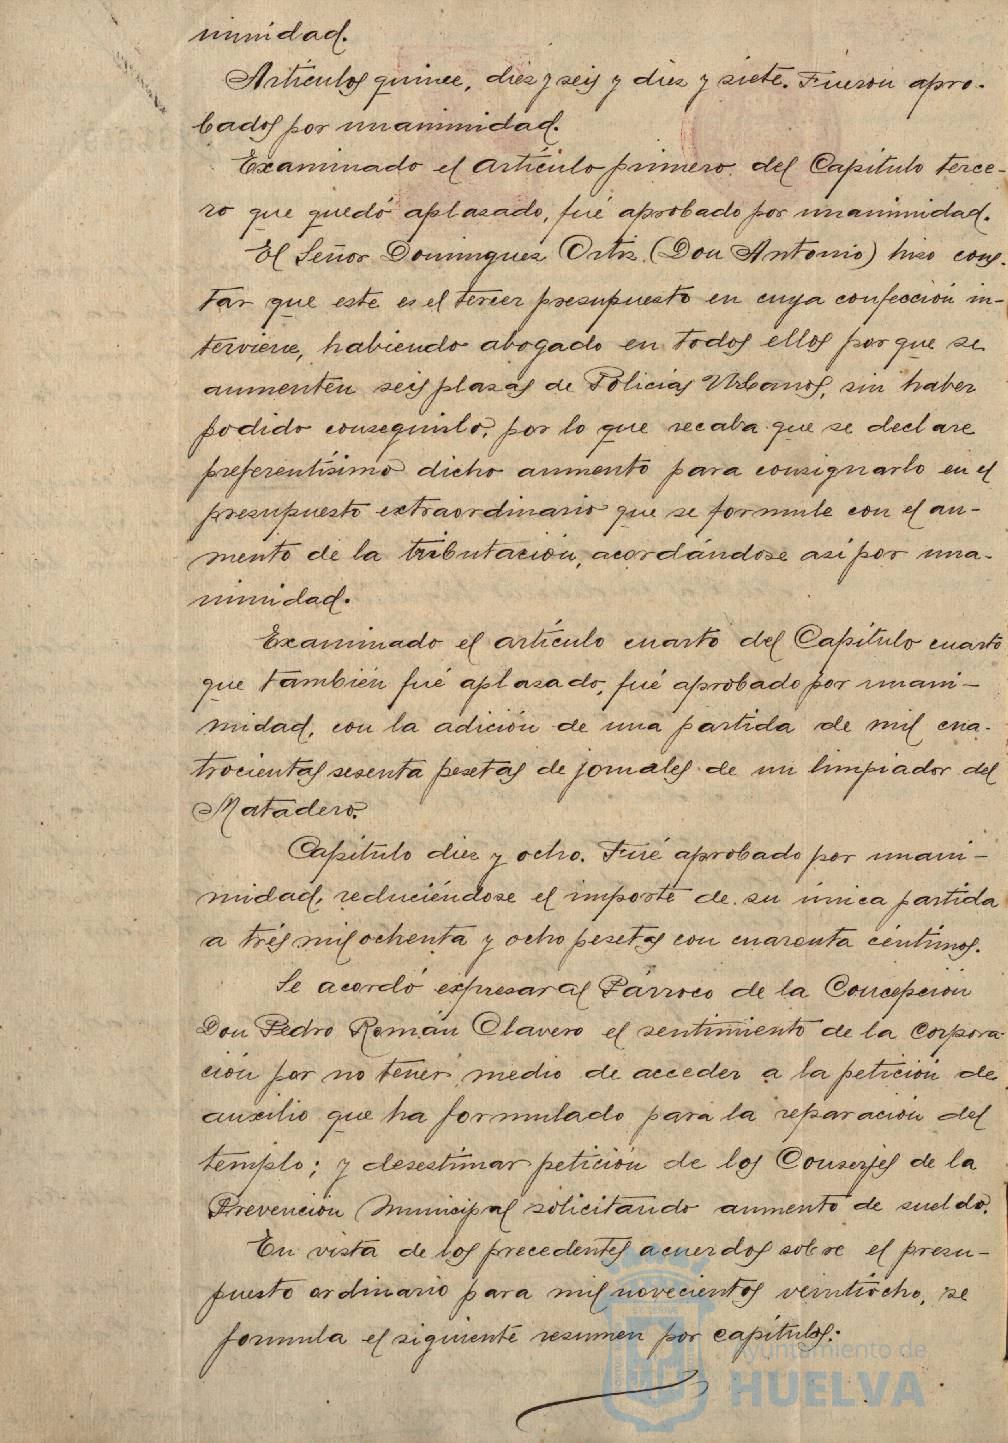 nimidad.
Artículos quince, diez y seis y diez y siete. Fueron apro-
bados por unanimidad.
Examinado el artículo primero del Capítulo terce-
ro que quedó aplazado, fué aprobado por unanimidad.
El Señor Dominguez Ortiz (Don Antonio) hizo cons-
tar que este es el tercer presupuesto en cuya confección in-
terviene, habiendo abogado en todos ellos porque se
aumenten seis plazas de Policías Urbanos, sin haber
podido conseguirlo, por lo que recaba que se declare
preferentísimo dicho aumento para consignarlo en el
presupuesto extraordinario que se formule con el au-
mento de la tributación, acordándose así por una-
nimidad.
Examinado el artículo cuarto del Capítulo cuarto
que también fué aplazado, fué aprobado por unani-
midad, con la adición de una partida de mil cua-
trocientas sesenta pesetas de jornales de un limpiador del
Matadero.
Capítulo diez y ocho. Fué aprobado por unani-
midad, reduciéndose el importe de su única partida
a trés mil ochenta y ocho pesetas con cuarenta céntimos.
Se acordó expresar al Párroco de la Concepción
Don Pedro Román Clavero el sentimiento de la Corpora-
ción por no tener medio de acceder a la petición de
auxilio que ha formulado para la reparación del
templo; y desestimar petición de los Conserjes de la
Prevención Municipal solicitando aumento de sueldo.
En vista de los precedentes acuerdos sobre el presu-
puesto ordinario para mil novecientos veintiocho, se
formula el siguiente resumen por capítulos:
Ayuntamiento de
HUELVA